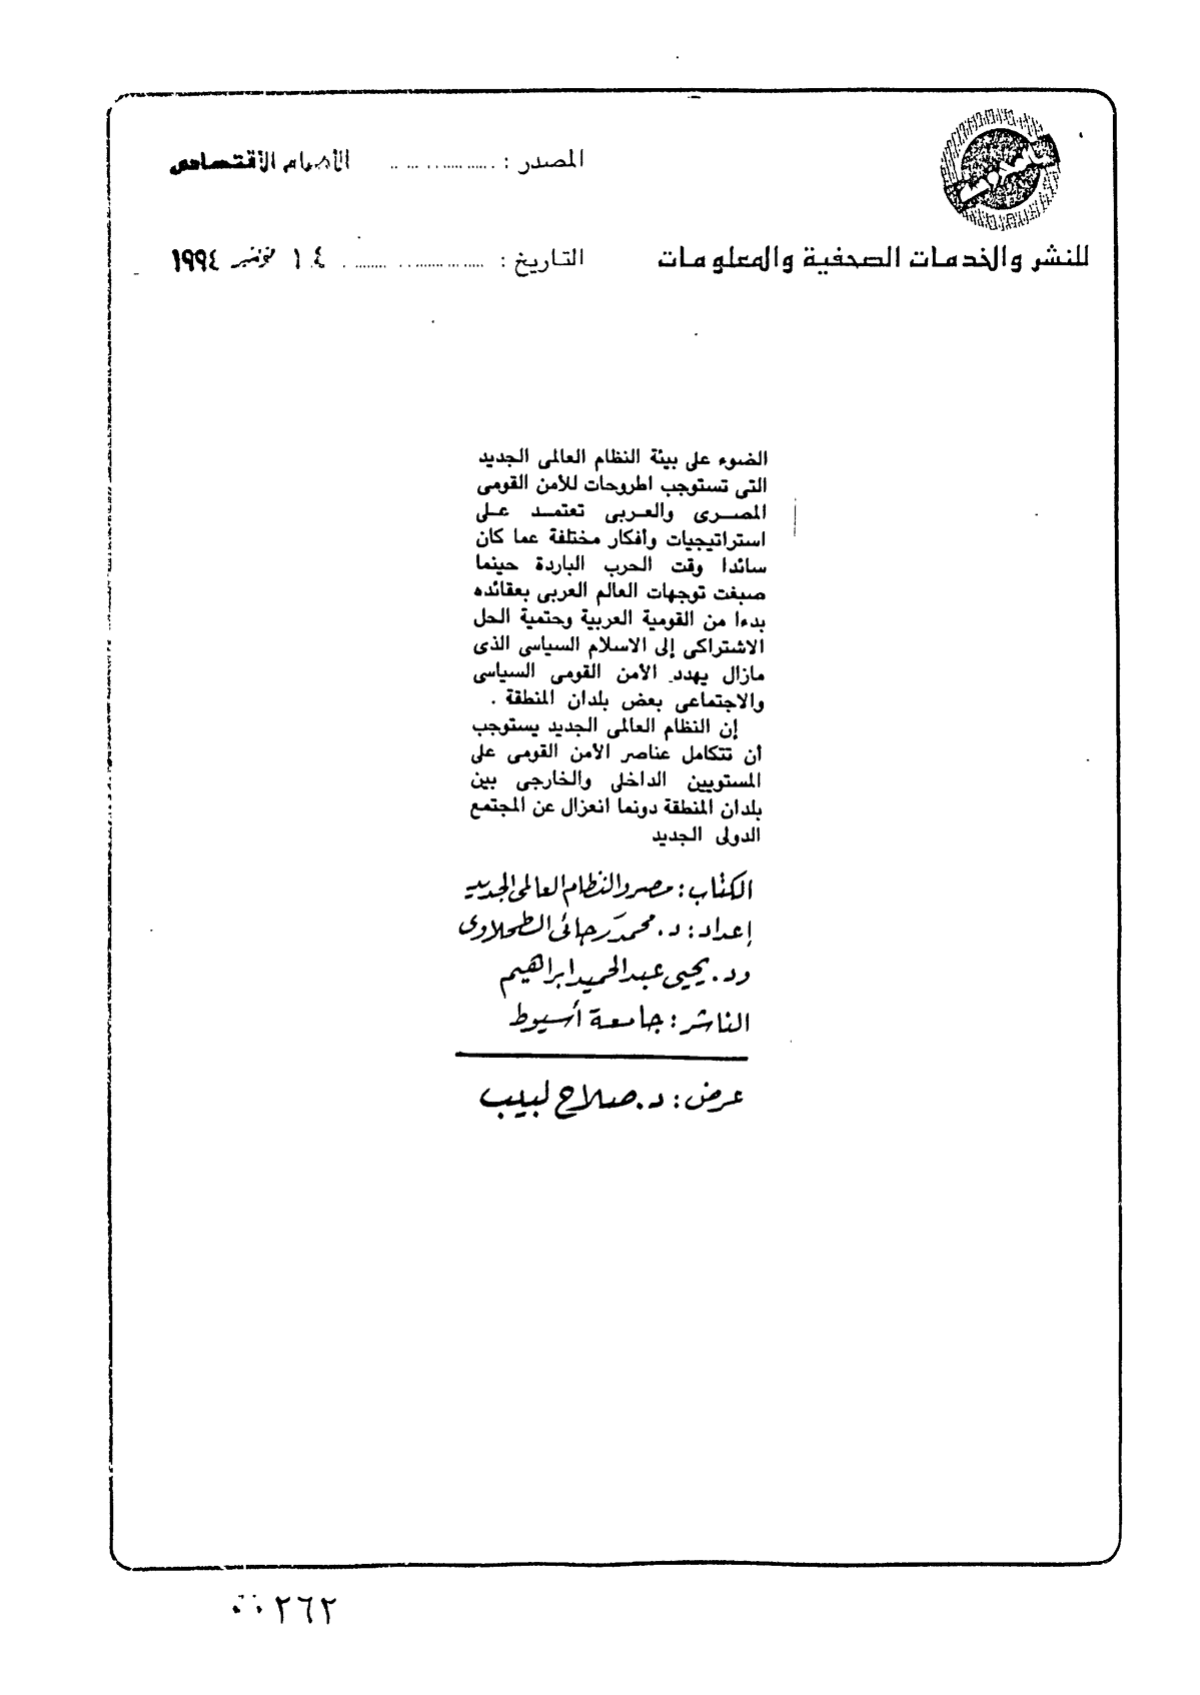 المصدر : الأهرام الاقتصادى
للنشر والخدمات الصحفية والمعلومات
التاريخ : ١٤ نوفمبر ١٩٩٤
الضوء على بيئة النظام العالمى الجديد
التى تستوجب اطروحات للأمن القومى
المصرى والعربى تعتمد على
استراتيجيات وأفكار مختلفة عما كان
سائدا وقت الحرب الباردة حينما
صبغت توجهات العالم العربى بعقائده
بدءا من القومية العربية وحتمية الحل
الاشتراكى إلى الاسلام السياسى الذى
مازال يهدد الأمن القومى السياسى
والاجتماعى بعض بلدان المنطقة .
إن النظام العالمى الجديد يستوجب
أن تتكامل عناصر الأمن القومى على
المستويين الداخلى والخارجى بين
بلدان المنطقة دونما انعزال عن المجتمع
الدولى الجديد
الكتاب : مصر والنظام العالمى الجديد
إعداد : د. محمد رجائى الطحلاوى
ود. يحيى عبد الحميد ابراهيم
الناشر : جامعة أسيوط
عرض : د. صلاح لبيب
٠٠٢٦٢